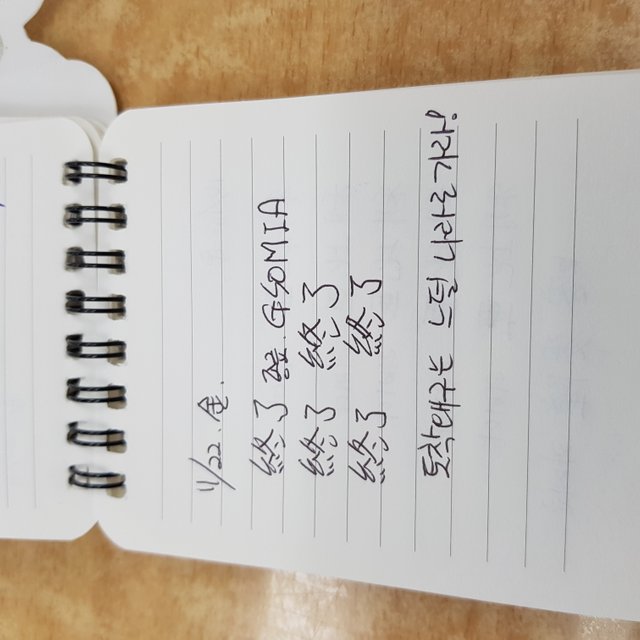 11/22 金.
終了 GSOMIA
終了 終了
終了 終了
토착왜구는 느덜 나라로 가라!